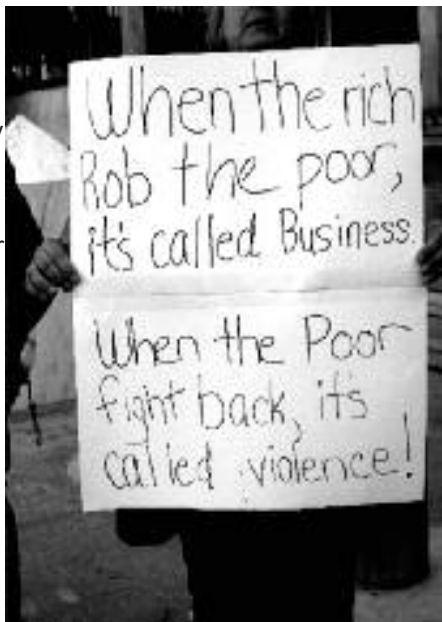 When the rich
Rob the poor,
it's called Business.
When the Poor
fight back, it's
called violence!